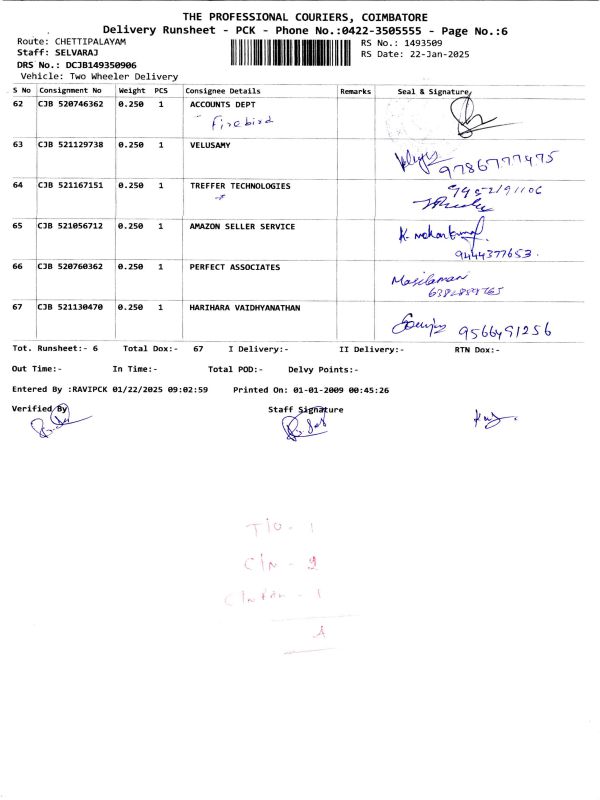 THE PROFESSIONAL COURIERS, COIMBATORE
Delivery Runsheet - PCK - Phone No.:0422-3505555 - Page No.:6
Route: CHETTIPALAYAM
RS No.: 1493509
Staff: SELVARAJ
RS Date: 22-Jan-2025
DRS No.: DCJB149350906
Vehicle: Two Wheeler Delivery
S No Consignment No Weight PCS Consignee Details Remarks Seal & Signature
62 CJB 520746362 0.250 1 ACCOUNTS DEPT
Firebird
63 CJB 521129738 0.250 1 VELUSAMY
9786777475
64 CJB 521167151 0.250 1 TREFFER TECHNOLOGIES
65 CJB 521056712 0.250 1 AMAZON SELLER SERVICE
K. mohankumar
9444377653.
66 CJB 520760362 0.250 1 PERFECT ASSOCIATES
Masilamani
67 CJB 521130470 0.250 1 HARIHARA VAIDHYANATHAN
9566491256
Tot. Runsheet:- 6 Total Dox:- 67 I Delivery:- II Delivery:- RTN Dox:-
Out Time:- In Time:- Total POD:- Delvy Points:-
Entered By :RAVIPCK 01/22/2025 09:02:59 Printed On: 01-01-2009 00:45:26
Verified By Staff Signature
T/O - 1
C/N - 2